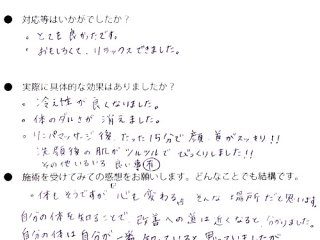 ● 対応等はいかがでしたか?
。とても良かったです。
。おもしろくて、リラックスできました。
● 実際に具体的な効果はありましたか?
。冷え性が良くなりました。
。体のダルさが消えました。
。リンパマッサージ後、たった15分で顔、首がスッキリ!!
洗顔後の肌がツルツルでびっくりしました!!
その他いろいろ良い事有
● 施術を受けてみての感想をお願いします。どんなことでも結構です。
。体もそうですが「心も変わる。」そんな場所だと思います
自分の体を知ることで改善への道は近くなると分かりました。
自分の体は自分が一番知っていると思っていましたが